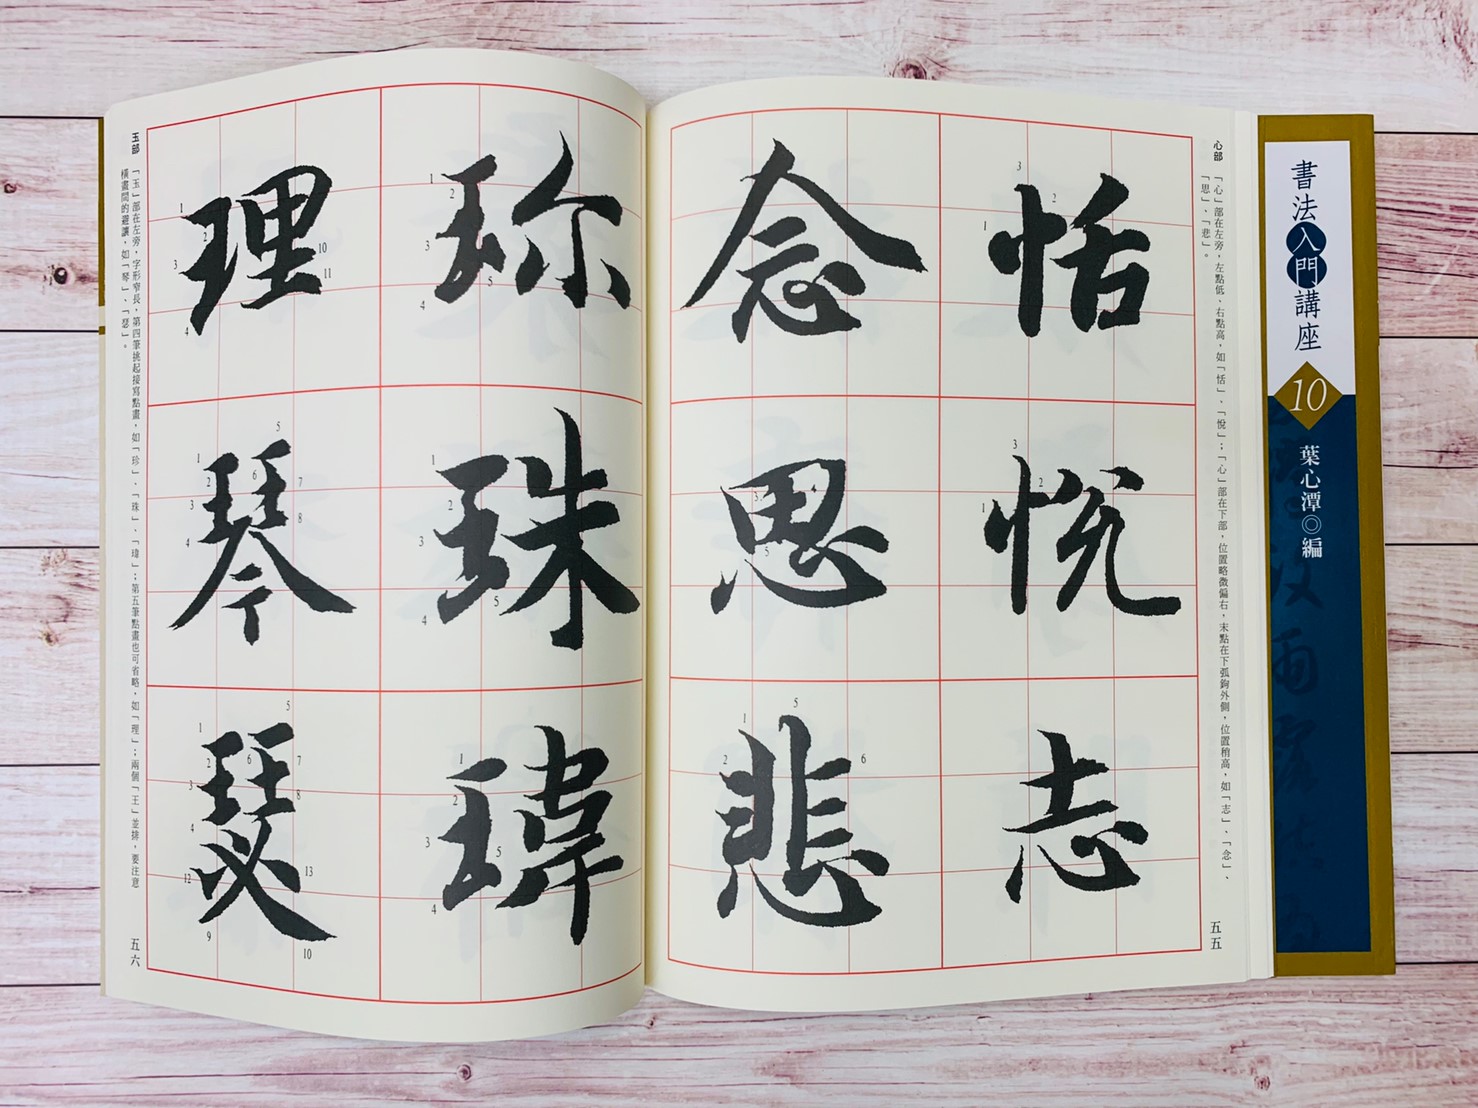 書法入門講座
10
葉心潭◎編
心部
「心」部在左旁，左點低、右點高，如「恬」、「悅」；「心」部在下部，位置略微偏右，末點在下弧鉤外側，位置稍高，如「志」、「念」、
「思」、「悲」。
恬
悅
志
念
思
悲
五五
玉部
「玉」部在左旁，字形窄長，第四筆挑起接寫點畫，如「珍」、「珠」、「瑋」；第五筆點畫也可省略，如「理」；兩個「王」並排，要注意
橫畫間的避讓，如「琴」、「瑟」。
珎
珠
瑋
理
琴
瑟
五六